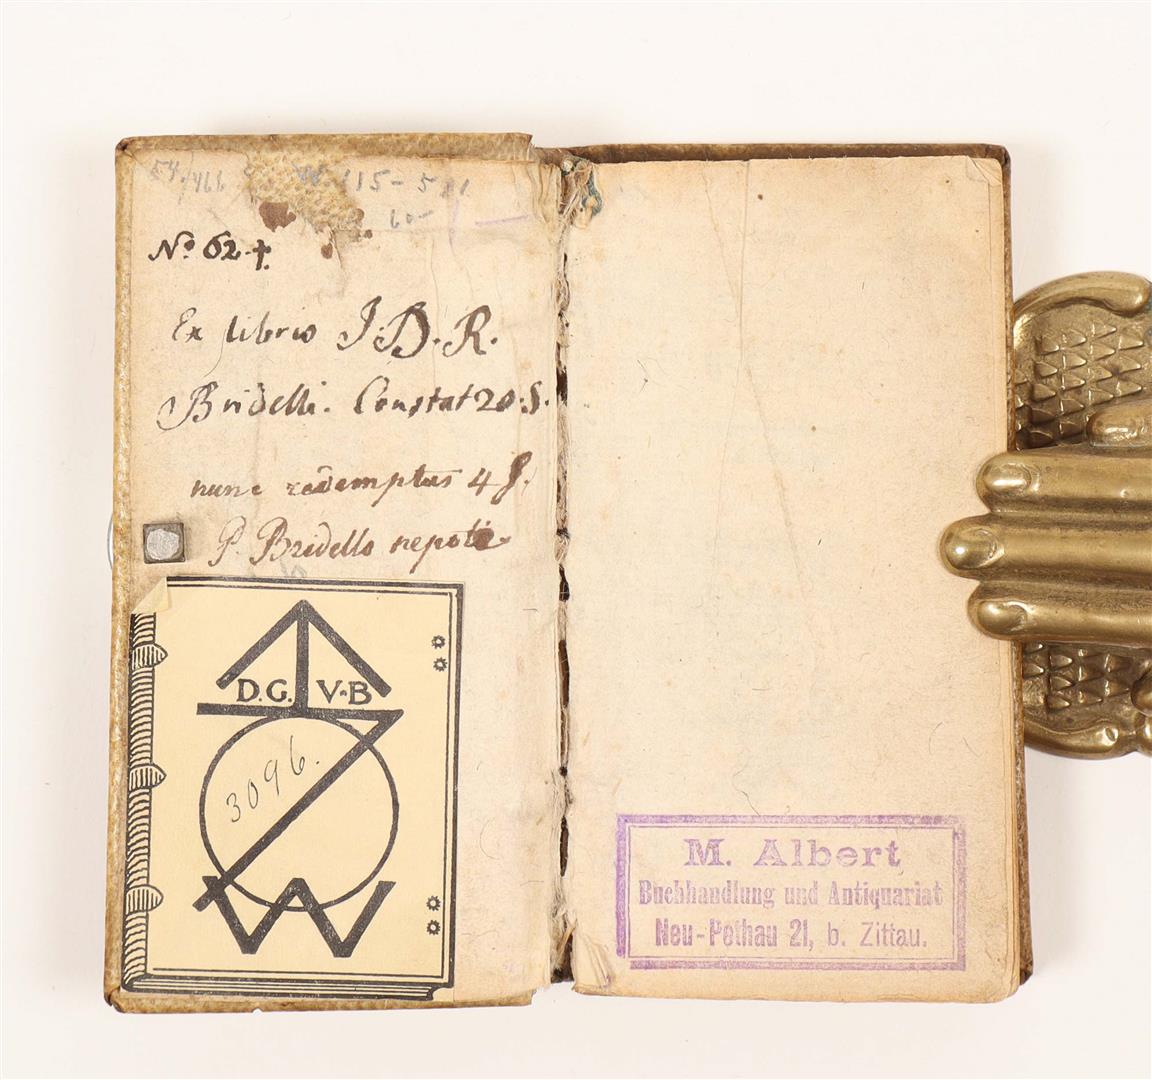 54/466 115- 5
60-
No. 62 †.
Ex libris J.D.R.
Bridelli. Constat 20.S.
nunc redemptus 4 S.
P. Bridello nepoti
D.G. V-B
3096.
W
M. Albert
Buchhandlung und Antiquariat
Neu-Pethau 21, b. Zittau.